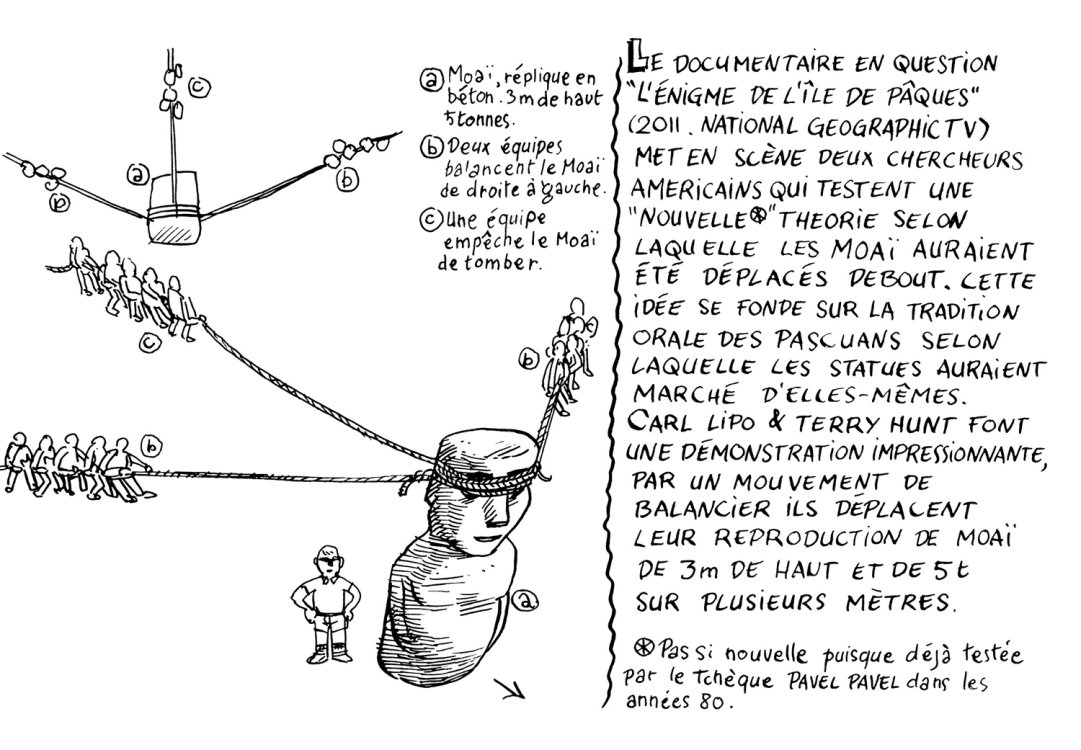 ⓐ Moaï, réplique en
béton. 3m de haut
5 tonnes.
ⓑ Deux équipes
balancent le Moaï
de droite à gauche.
ⓒ Une équipe
empêche le Moaï
de tomber.
ⓒ
ⓐ
ⓑ
ⓑ
ⓒ
ⓑ
ⓑ
ⓐ
LE DOCUMENTAIRE EN QUESTION
"L'ÉNIGME DE L'ÎLE DE PÂQUES"
(2011. NATIONAL GEOGRAPHIC TV)
MET EN SCÈNE DEUX CHERCHEURS
AMERICAINS QUI TESTENT UNE
"NOUVELLE⊛" THEORIE SELON
LAQUELLE LES MOAÏ AURAIENT
ÉTÉ DÉPLACÉS DEBOUT. CETTE
IDÉE SE FONDE SUR LA TRADITION
ORALE DES PASCUANS SELON
LAQUELLE LES STATUES AURAIENT
MARCHÉ D'ELLES-MÊMES.
CARL LIPO & TERRY HUNT FONT
UNE DÉMONSTRATION IMPRESSIONNANTE,
PAR UN MOUVEMENT DE
BALANCIER ILS DÉPLACENT
LEUR REPRODUCTION DE MOAÏ
DE 3m DE HAUT ET DE 5t
SUR PLUSIEURS MÈTRES.
⊛ Pas si nouvelle puisque déjà testée
par le tchèque PAVEL PAVEL dans les
années 80.